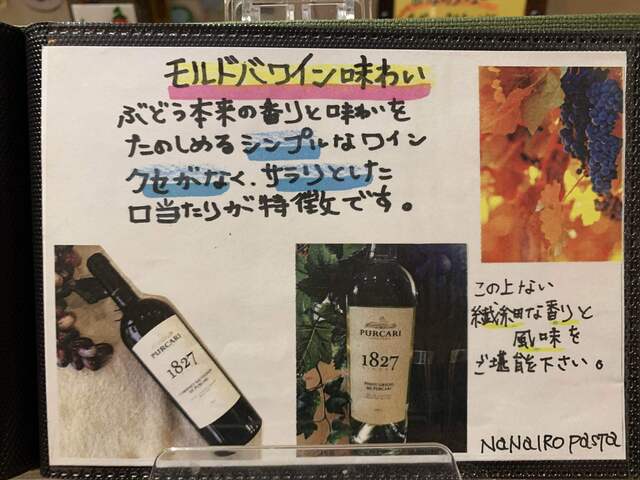 モルドバワイン味わい
ぶどう本来の香りと味わいを
たのしめるシンプルなワイン
クセがなく、サラリとした
口当たりが特徴です。
この上ない
繊細な香りと
風味を
ご堪能下さい。
PURCARI
1827
PURCARI
1827
PINOT GRIGIO
DE PURCARI
NANAIRO PASTA